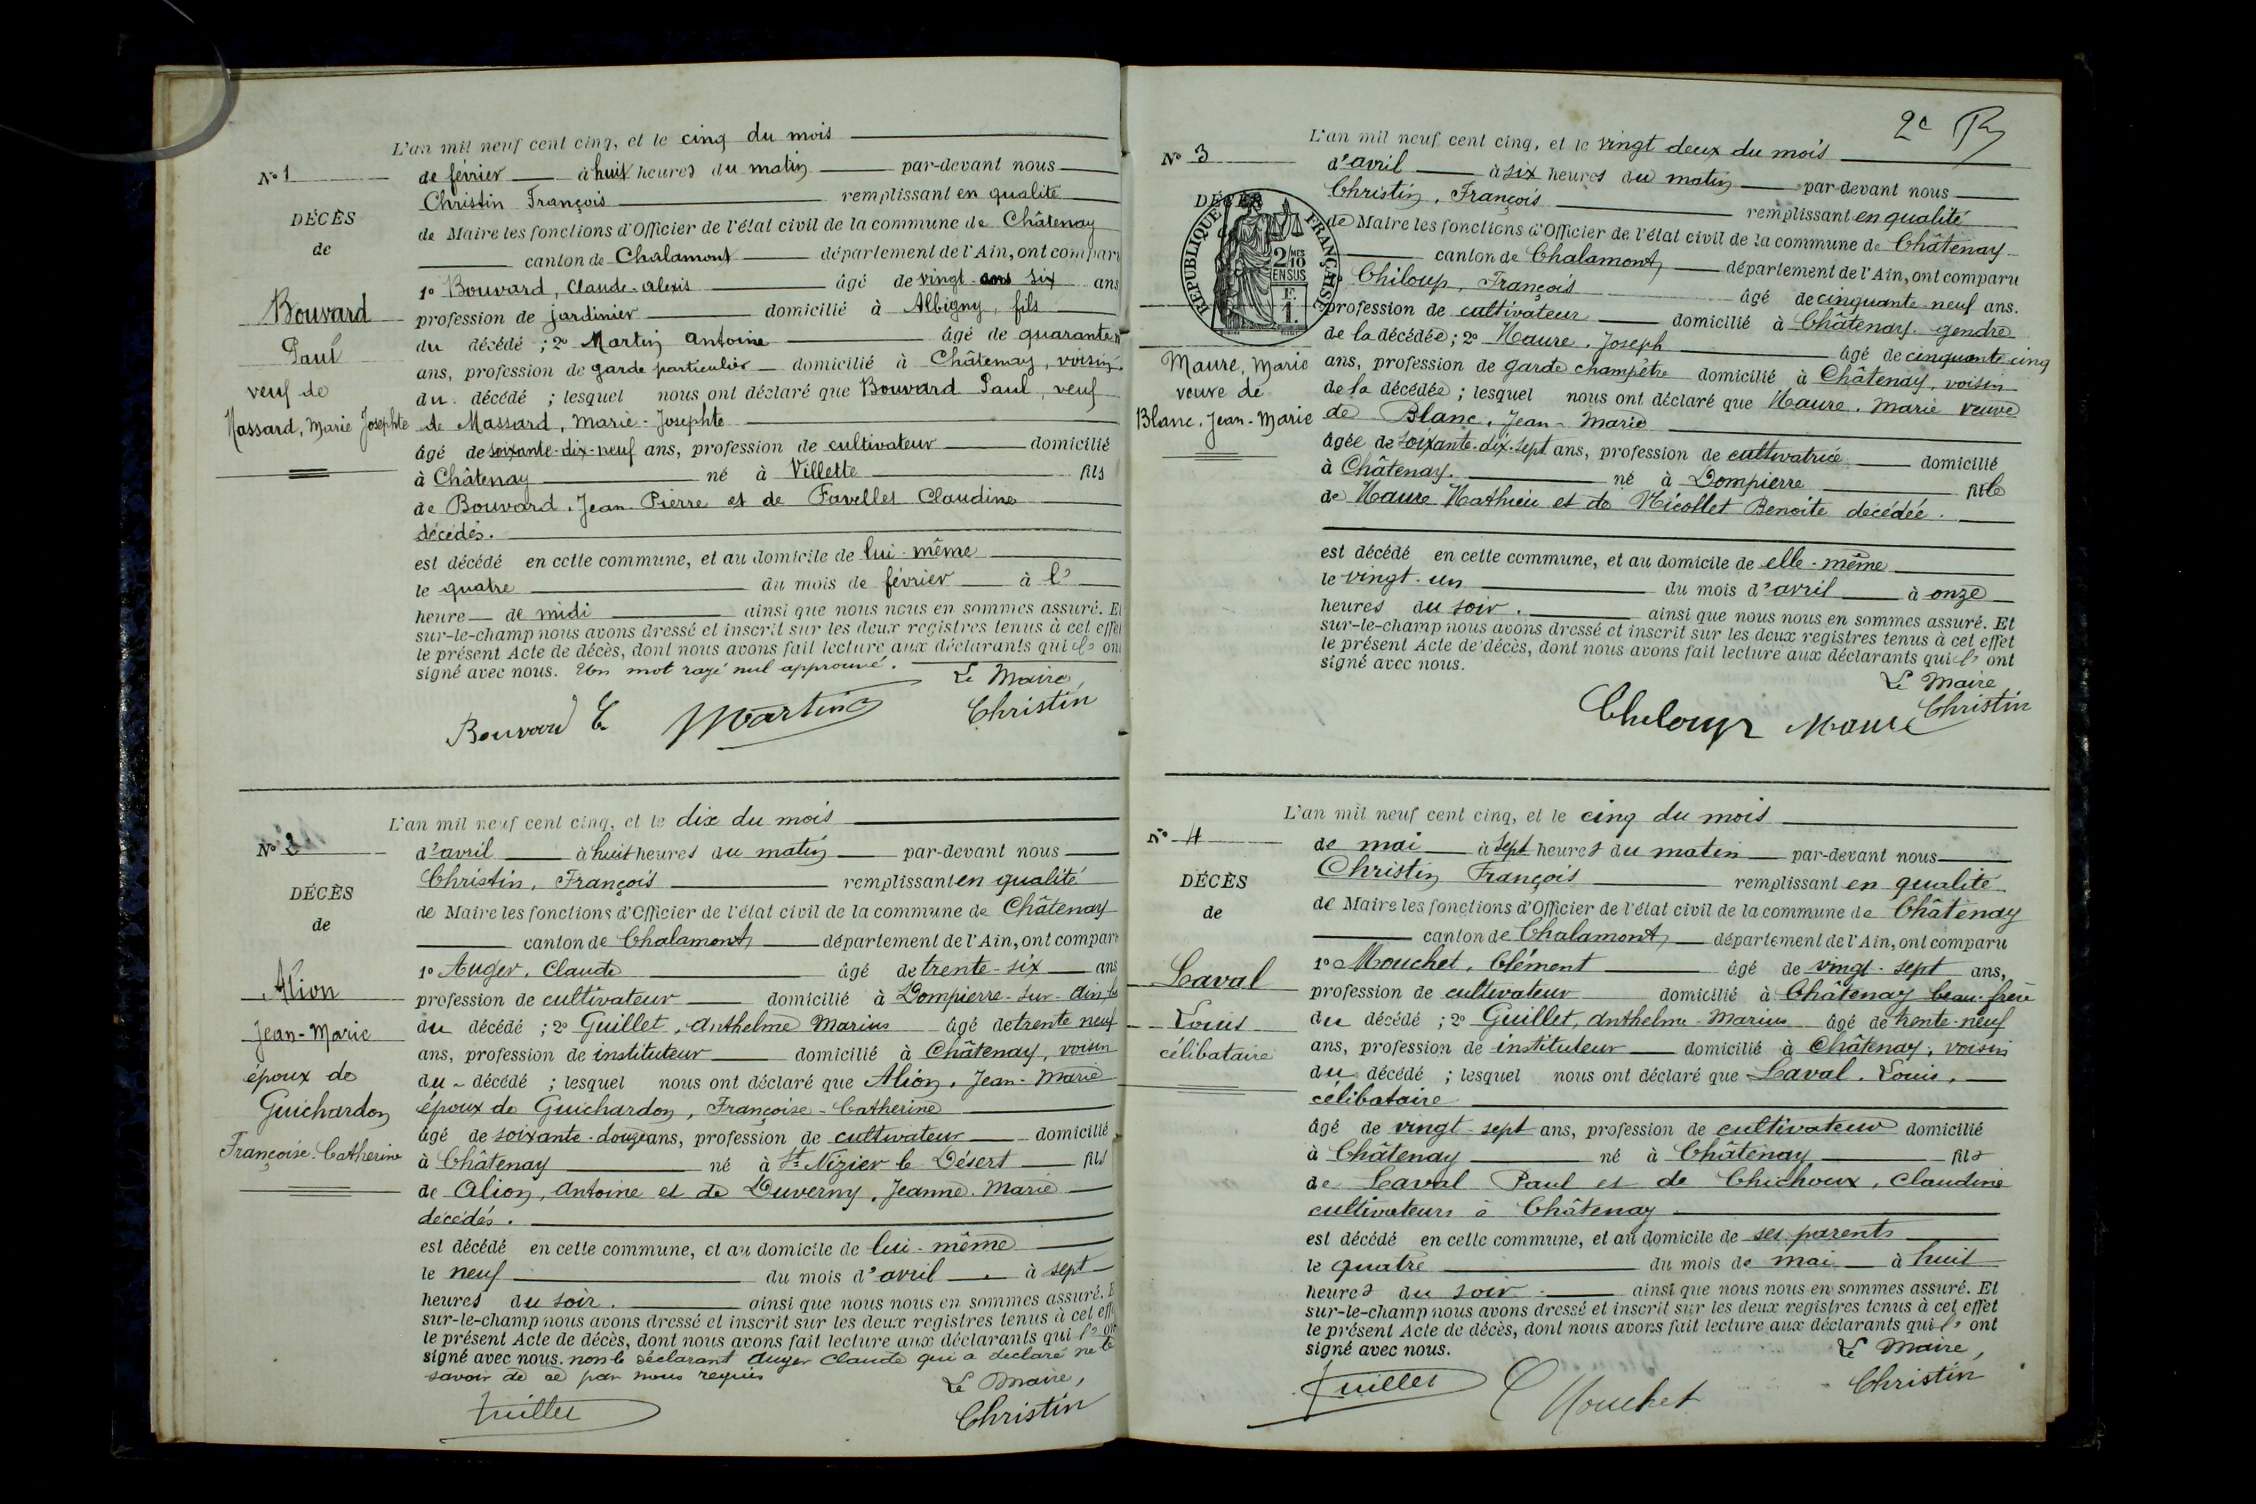 L'an mil neuf cent cinq, et le cinq du mois
Nº 1
de février à huit heures du matin par-devant nous
Christin François remplissant en qualité
DÉCÈS
de Maire les fonctions d'Officier de l'état civil de la commune de Châtenay
de
canton de Chalamont département de l'Ain, ont compar
1º Bouvard, Claude-alexis âgé de vingt ans six ans
Bouvard
profession de jardinier domicilié à Albigny, fils
Paul
du décédé ; 2º Martin Antoine âgé de quarante
ans, profession de garde particulier domicilié à Châtenay, voisin
veuf de
du décédé ; lesquel nous ont déclaré que Bouvard Paul, veuf
Massard, Marie Josephte
de Massard, Marie-Josephte
âgé de soixante-dix-neuf ans, profession de cultivateur domicilié
à Châtenay né à Villette fils
de Bouvard, Jean Pierre et de Favellet Claudine
décédés.
est décédé en cette commune, et au domicile de lui-même
le quatre du mois de février à l'
heure de midi ainsi que nous nous en sommes assuré. Et
sur-le-champ nous avons dressé et inscrit sur les deux registres tenus à cet effet
le présent Acte de décès, dont nous avons fait lecture aux déclarants qui l' ont
signé avec nous. Un mot rayé nul approuvé.
Le Maire,
Bouvard C Martin Christin
L'an mil neuf cent cinq, et le dix du mois
Nº 2
d'avril à huit heures du matin par-devant nous
Christin, François remplissant en qualité
DÉCÈS
de Maire les fonctions d'Officier de l'état civil de la commune de Châtenay
de
canton de Chalamont département de l'Ain, ont compar
1º Auger, Claude âgé de trente-six ans
Alion
profession de cultivateur domicilié à Dompierre-sur-Ain,
Jean-Marie
du décédé ; 2º Guillet, Anthelme Marius âgé de trente neuf
ans, profession de instituteur domicilié à Châtenay, voisin
époux de
du décédé ; lesquel nous ont déclaré que Alion, Jean-Marie
Guichardon
époux de Guichardon, Françoise-Catherine
Françoise-Catherine
âgé de soixante-douze ans, profession de cultivateur domicilié
à Châtenay né à St Nizier le Désert fils
de Alion, Antoine et de Duverny, Jeanne-Marie
décédés.
est décédé en cette commune, et au domicile de lui-même
le neuf du mois d'avril à sept
heures du soir. ainsi que nous nous en sommes assuré. E
sur-le-champ nous avons dressé et inscrit sur les deux registres tenus à cet eff
le présent Acte de décès, dont nous avons fait lecture aux déclarants qui l' on
signé avec nous. non le déclarant Auger Claude qui a déclaré ne le
savoir de ce par nous requis
Le Maire,
Guillet Christin
2e
L'an mil neuf cent cinq, et le vingt deux du mois
Nº 3
d'avril à six heures du matin par-devant nous
Christin, François remplissant en qualité
DÉCÈS
RÉPUBLIQUE FRANÇAISE
2/10 MES
EN SUS
F.
1.
de Maire les fonctions d'Officier de l'état civil de la commune de Châtenay
canton de Chalamont, département de l'Ain, ont comparu
1º Chiloup, François âgé de cinquante-neuf ans.
profession de cultivateur domicilié à Châtenay gendre
de la décédée ; 2º Maure, Joseph âgé de cinquante-cinq
Maure, Marie
ans, profession de garde champêtre domicilié à Châtenay, voisin
veuve de
de la décédée ; lesquel nous ont déclaré que Maure, Marie veuve
Blanc, Jean-Marie
de Blanc, Jean-Marie
âgée de soixante-dix-sept ans, profession de cultivatrice domicilié
à Châtenay. né à Dompierre fille
de Maure Mathieu et de Nicollet Benoite décédée.
est décédé en cette commune, et au domicile de elle-même
le vingt-un du mois d'avril à onze
heures du soir. ainsi que nous nous en sommes assuré. Et
sur-le-champ nous avons dressé et inscrit sur les deux registres tenus à cet effet
le présent Acte de décès, dont nous avons fait lecture aux déclarants qui l' ont
signé avec nous.
Le Maire
Chiloup Maure Christin
L'an mil neuf cent cinq, et le cinq du mois
Nº 4
de mai à sept heures du matin par-devant nous
Christin François remplissant en qualité
DÉCÈS
de Maire les fonctions d'Officier de l'état civil de la commune de Châtenay
de
canton de Chalamont, département de l'Ain, ont comparu
1º Mouchet, Clément âgé de vingt-sept ans,
Laval
profession de cultivateur domicilié à Châtenay beau-frère
Louis
du décédé ; 2º Guillet, Anthelme-Marius âgé de trente-neuf
célibataire
ans, profession de instituteur domicilié à Châtenay, voisin
du décédé ; lesquel nous ont déclaré que Laval, Louis,
célibataire
âgé de vingt-sept ans, profession de cultivateur domicilié
à Châtenay né à Châtenay fils
de Laval Paul et de Chichoux, Claudine
cultivateurs à Châtenay
est décédé en cette commune, et au domicile de ses parents
le quatre du mois de mai à huit
heures du soir ainsi que nous nous en sommes assuré. Et
sur-le-champ nous avons dressé et inscrit sur les deux registres tenus à cet effet
le présent Acte de décès, dont nous avons fait lecture aux déclarants qui l' ont
signé avec nous.
Le Maire,
Guillet C Mouchet Christin